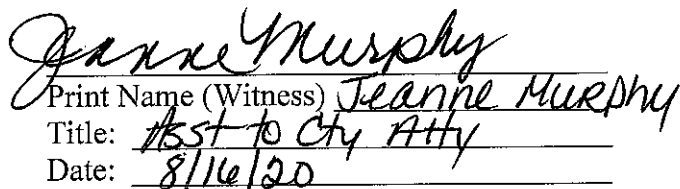 Jeanne Murphy
Print Name (Witness) Jeanne Murphy
Title: Asst to Cty Atty
Date: 8/16/20